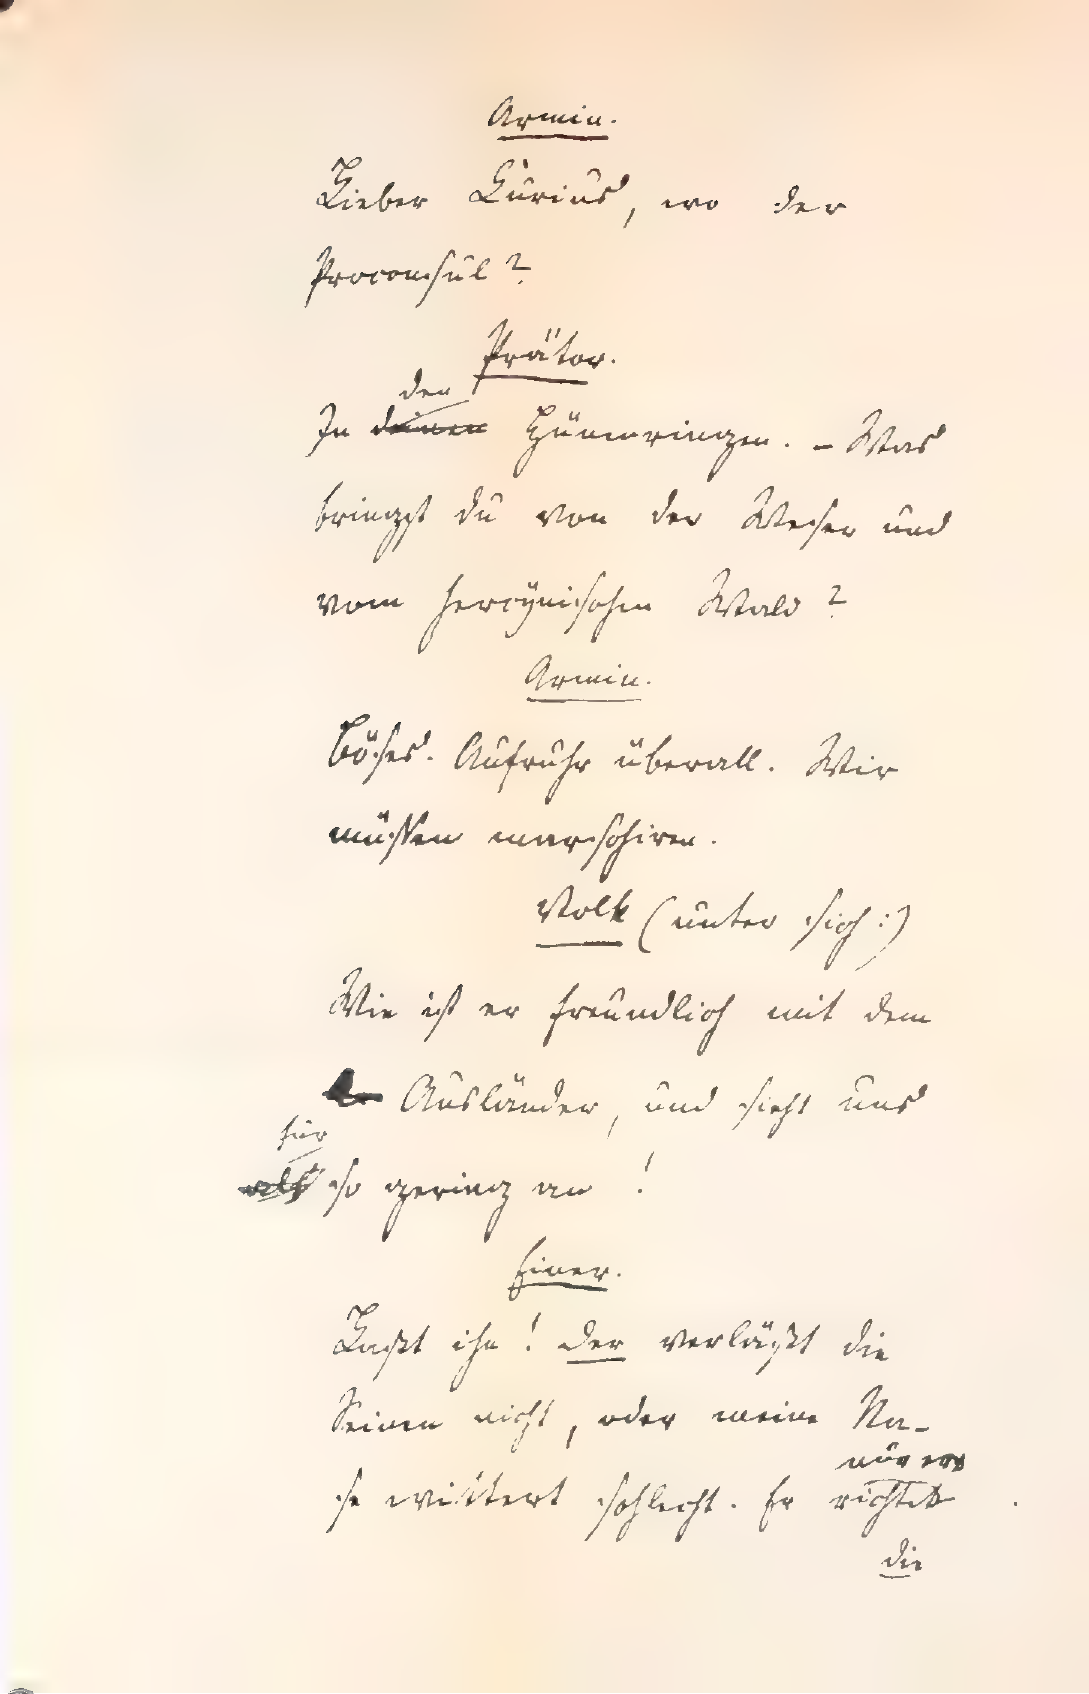 Armin.
Lieber Curius, wo der
Proconsul?
Prätor.
den
In deinen Hünenringen. – Was
bringst du von der Weser und
vom hercynischen Wald?
Armin.
Böses. Aufruhr überall. Wir
müssen marschiren.
Volk (unter sich:)
Wie ist er freundlich mit dem
Ausländer, und sieht uns
für
als so gering an!
Einer.
Laßt ihn! Der verläßt die
Seinen nicht, oder meine Na-
se wittert schlecht. Er richtet
die